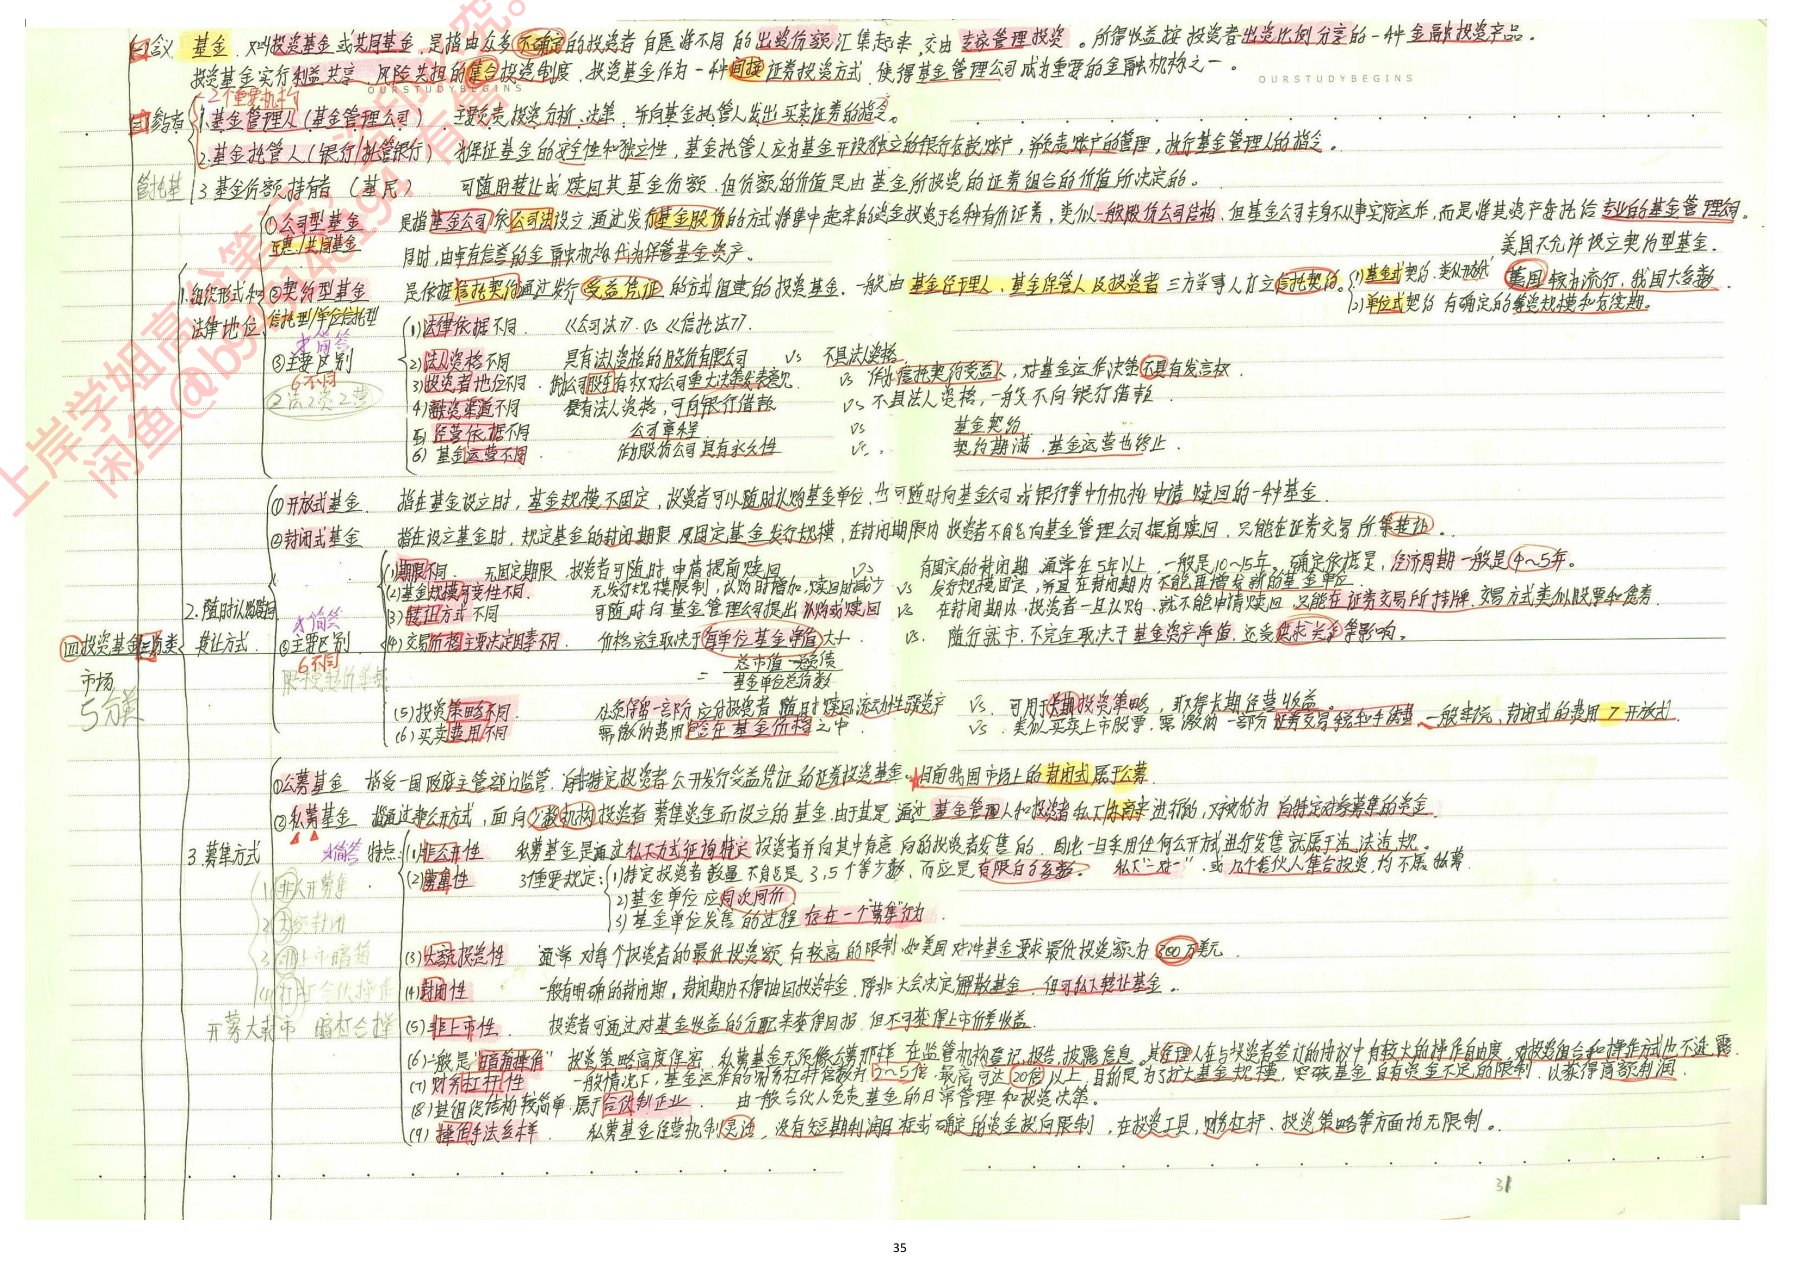 ㈠含义 基金,又叫投资基金或共同基金,是指由众多不确定的投资者自愿将不同的出资份额汇集起来,交由专家管理投资。所得收益按投资者出资比例分享的一种金融投资产品。
投资基金实行利益共享、风险共担的集合投资制度,投资基金作为一种间接证券投资方式,使得基金管理公司成为重要的金融机构之一。
OURSTUDYBEGINS
OURSTUDYBEGINS
2个重要机构
㈡参与者 1.基金管理人(基金管理公司) 主要负责投资分析、决策,并向基金托管人发出买卖证券的指令。
2.基金托管人(银行/托管银行) 为保证基金的安全性和独立性,基金托管人应为基金开设独立的银行存款账户,并负责账户的管理,执行基金管理人的指令。
管托基 3.基金份额持有者(基民) 可随时转让或赎回其基金份额,但份额的价值是由基金所投资的证券组合的价值所决定的。
①公司型基金 是指基金公司依公司法设立,通过发行基金股份的方式将集中起来的资金投资于各种有价证券,类似一般股份公司结构,但基金公司本身不从事实际运作,而是将其资产委托给专业的基金管理公司。
互惠/共同基金 同时,由卓有信誉的金融机构代为保管基金资产。
美国不允许设立契约型基金.
1.组织形式和法律地位
②契约型基金 是依据信托契约通过发行受益凭证的方式组建的投资基金.一般由基金经理人、基金保管人及投资者三方当事人订立信托契约。
信托型/单位信托型
(1)基金式契约 英国较为流行,我国大多数.
(2)单位式契约 有确定的筹资规模和有效期。
☆简答
③主要区别
6不同
2法2资2营
(1)法律依据不同. 《公司法》 vs 《信托法》.
(2)法人资格不同 具有法人资格的股份有限公司 vs 不具法人资格
(3)投资者地位不同. 作为公司股东有权对公司重大决策发表意见 vs 作为信托契约受益人,对基金运作决策不具有发言权.
(4)融资渠道不同 具有法人资格,可向银行借款 vs 不具法人资格,一般不向银行借款.
(5)经营依据不同 公司章程 vs 基金契约
(6)基金运营不同. 作为股份公司具有永久性 vs. 契约期满,基金运营也终止.
①开放式基金 指在基金设立时,基金规模不固定,投资者可以随时认购基金单位,也可随时向基金公司或银行等中介机构申请赎回的一种基金.
②封闭式基金 指在设立基金时,规定基金的封闭期限及固定基金发行规模,在封闭期限内投资者不能向基金管理公司提前赎回,只能在证券交易所转让.
2.随时认购赎回转让方式.
☆简答
③主要区别
6不同
(1)期限不同. 无固定期限 投资者可随时申请提前赎回 vs 有固定的封闭期,通常在5年以上,一般是10~15年,确定依据是,经济周期一般是4~5年。
(2)基金规模可变性不同. 无发行规模限制,认购时增加,赎回时减少 vs 发行规模固定,并且在封闭期内不能再增发新的基金单位.
(3)转让方式不同 可随时向基金管理公司提出认购或赎回 vs 在封闭期内,投资者一旦认购,就不能申请赎回,只能在证券交易所挂牌,交易方式类似股票和债券.
(4)交易价格主要决定因素不同. 价格完全取决于每单位基金净值大小 vs. 随行就市,不完全取决于基金资产净值,还受供求关系等影响。
= 总市值-总负债 / 基金单位总份数
㈣投资基金市场
㈢分类
5分类
(5)投资策略不同. 必须保留一部分应付投资者随时赎回流动性强资产 vs. 可用于长期投资策略,取得长期经营收益.
(6)买卖费用不同 需缴纳费用包含在基金价格之中. vs. 类似买卖上市股票,要缴纳一部分证券交易税和手续费,一般来说,封闭式的费用>开放式.
①公募基金 指受一国政府主管部门监管,向非特定投资者公开发行受益凭证的证券投资基金.★目前我国市场上的封闭式属于公募.
②私募基金 指通过非公开方式,面向少数机构投资者募集资金而设立的基金,由于其是通过基金管理人和投资者私下协商来进行的,又被称为向特定对象募集的资金.
3.募集方式
☆简答 特点:
(1)非公开性 私募基金是通过私下方式征询特定投资者并向其中有意向的投资者发售的.因此一旦采用任何公开方式进行发售就属于违法违规.
(2)募集性 3重要规定:(1)特定投资者数量不能是3,5个等少数,而应是有限的多数。 私下“一对一”,或几个合伙人集合投资,均不属私募.
2)基金单位应同次同价
3)基金单位发售的过程存在一个“募集”行为.
(3)大额投资性 通常对每个投资者的最低投资额有较高的限制,如美国对冲基金要求最低投资额为300万美元.
(4)封闭性 一般有明确的封闭期,封闭期内不得抽回投资本金,除非大会决定解散基金,但可私下转让基金.
(5)非上市性. 投资者可通过对基金收益的分配来获得回报,但不可获得上市价差收益.
(6)一般是“暗箱操作” 投资策略高度保密,私募基金无须像公募那样在监管机构登记、报告、披露信息。其经理人在与投资者签订的协议中有较大的操作自由度,对投资组合和操作方式也不透露.
(7)财务杠杆性 一般情况下,基金运作的财务杠杆倍数为2~5倍,最高可达20倍以上,目的是为了扩大基金规模,突破基金自有资金不足的限制,以获得高额利润.
(8)其组织结构较简单,属于合伙制企业. 由一般合伙人负责基金的日常管理和投资决策。
(9)操作手法多样. 私募基金经营机制灵活,没有短期利润目标或确定的资金投向限制,在投资工具,财务杠杆、投资策略等方面均无限制。
1.非公开募集
2.大额封闭
3.非上市暗箱
4.杠杆合伙操作
开募大封市 暗杠合操
31
35